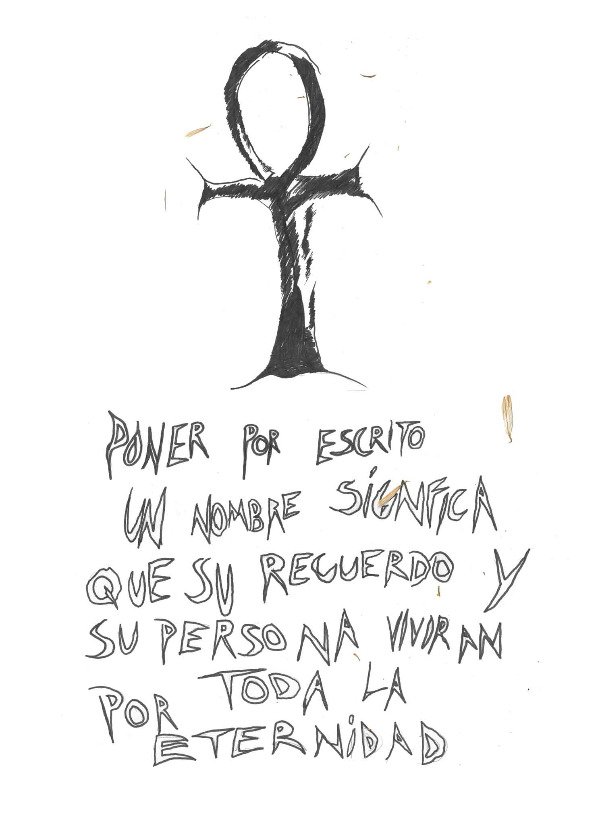 PONER POR ESCRITO
UN NOMBRE SIGNFICA
QUE SU RECUERDO Y
SU PERSONA VIVIRAN
POR TODA LA
ETERNIDAD